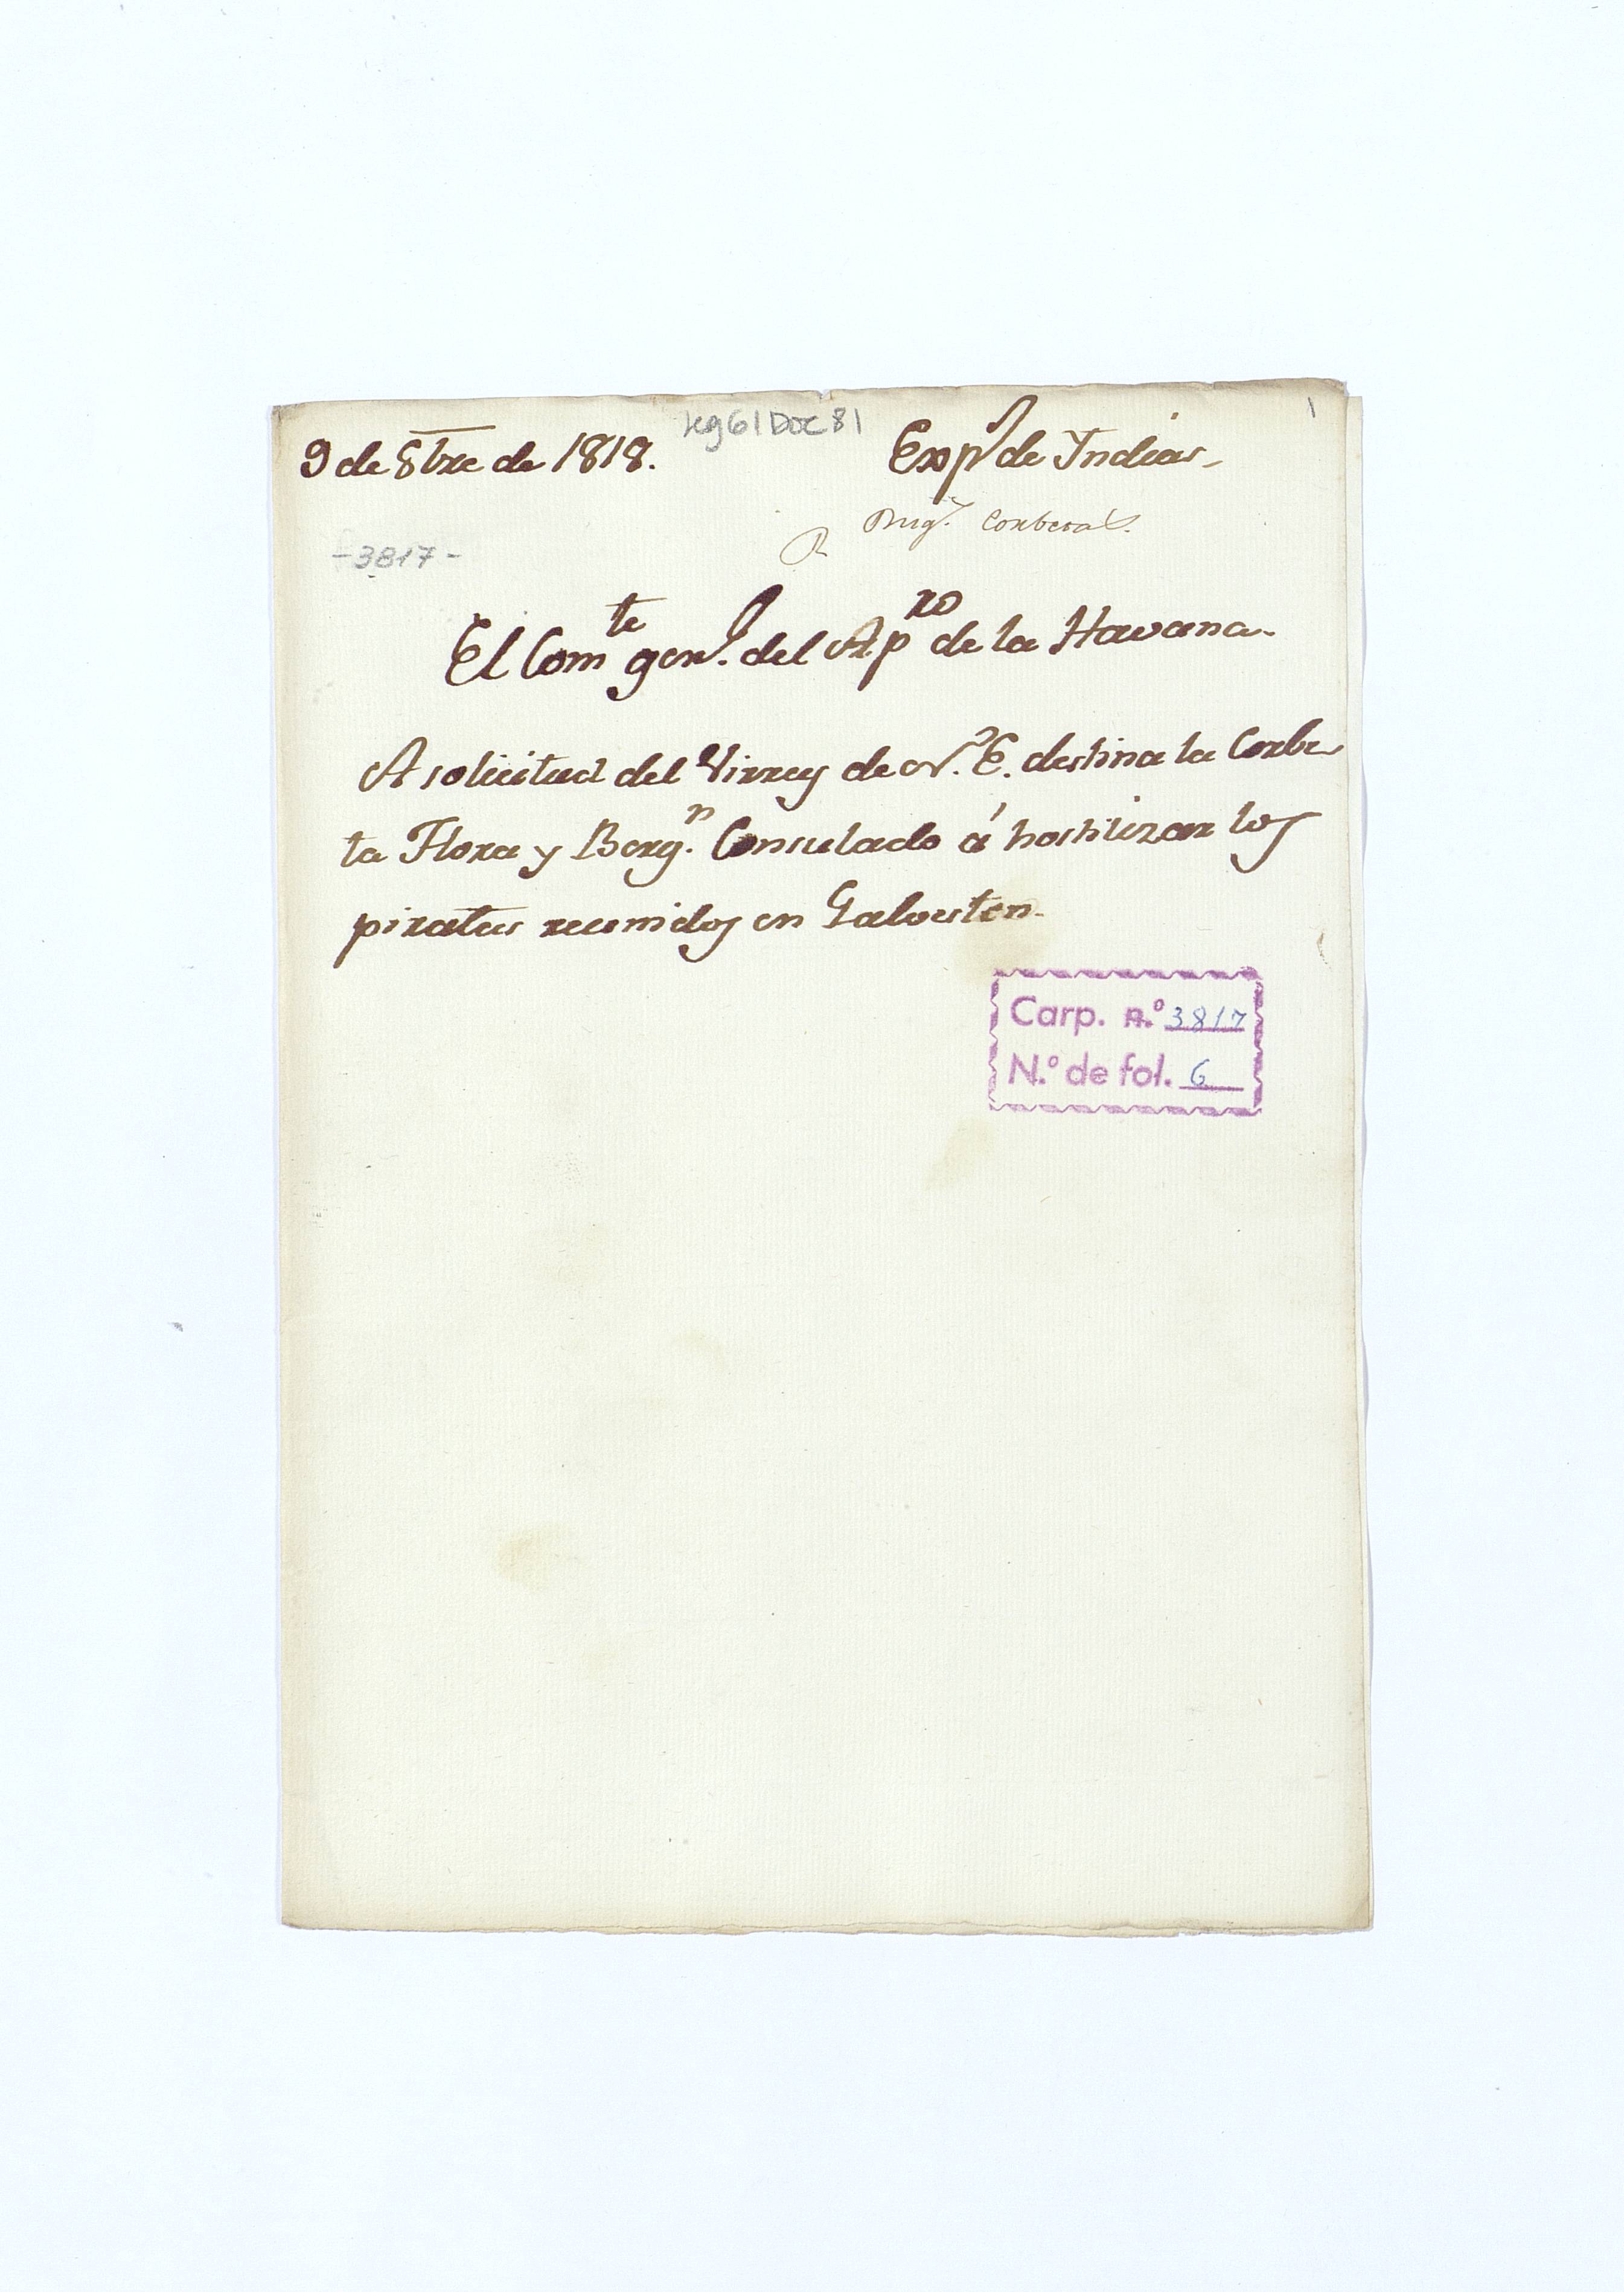 leg 61 Doc 81
1
9 de 8bre de 1818.
Exp.s de Indias.
Corbetas.
R
-3817-
El Comte genl. del Ap.ro de la Havana.
A solicitud del Virrey de N. E. destina la Corbe
ta Flora y Berg.n Consulado á hostilizar los
piratas reunidos en Galveston.
Carp. n.º 3817
N.º de fol. 6